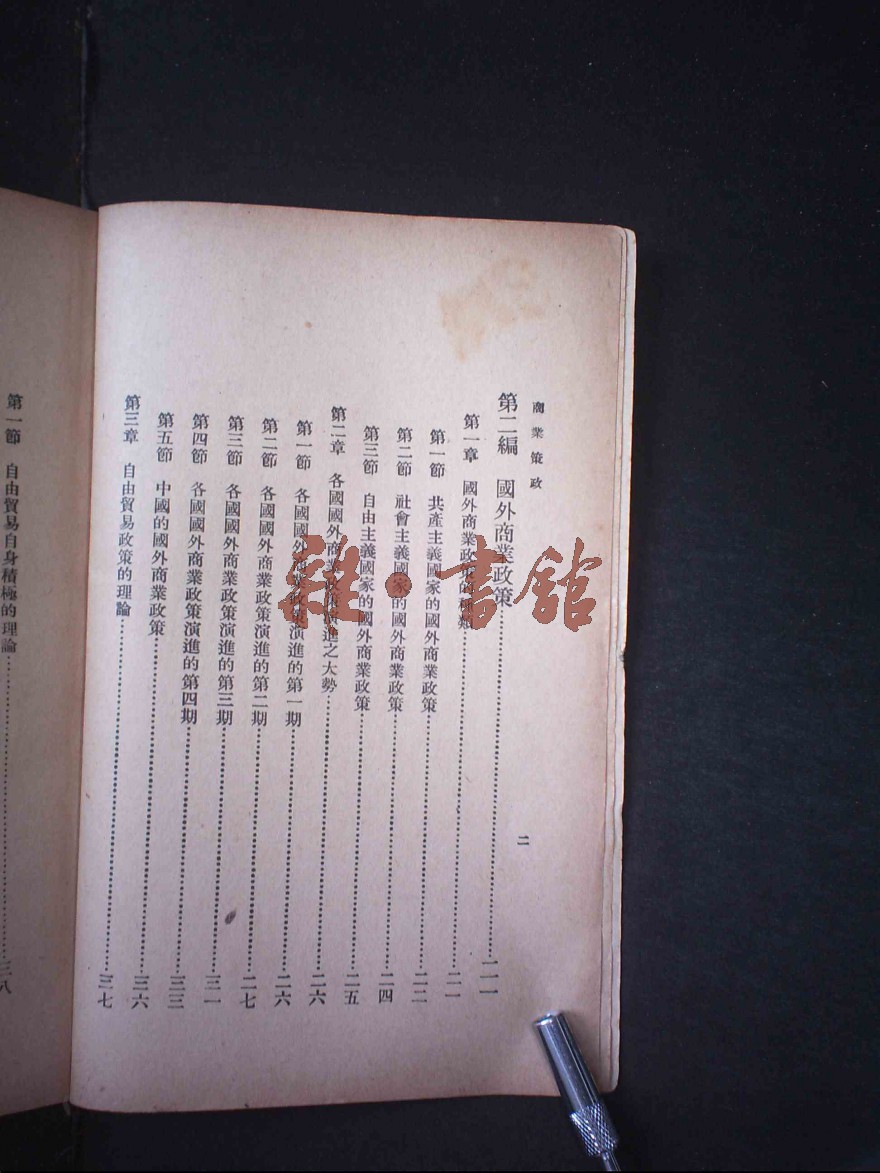 商業策政
二
第二編　國外商業政策……二一
第一章　國外商業政策的種類……二一
第一節　共產主義國家的國外商業政策……二二
第二節　社會主義國家的國外商業政策……二四
第三節　自由主義國家的國外商業政策……二五
第二章　各國國外商業政策演進之大勢……二六
第一節　各國國外商業政策演進的第一期……二六
第二節　各國國外商業政策演進的第二期……二七
第三節　各國國外商業政策演進的第三期……三一
第四節　各國國外商業政策演進的第四期……三三
第五節　中國的國外商業政策……三六
第三章　自由貿易政策的理論……三七
第一節　自由貿易自身積極的理論……三八
雜·書館